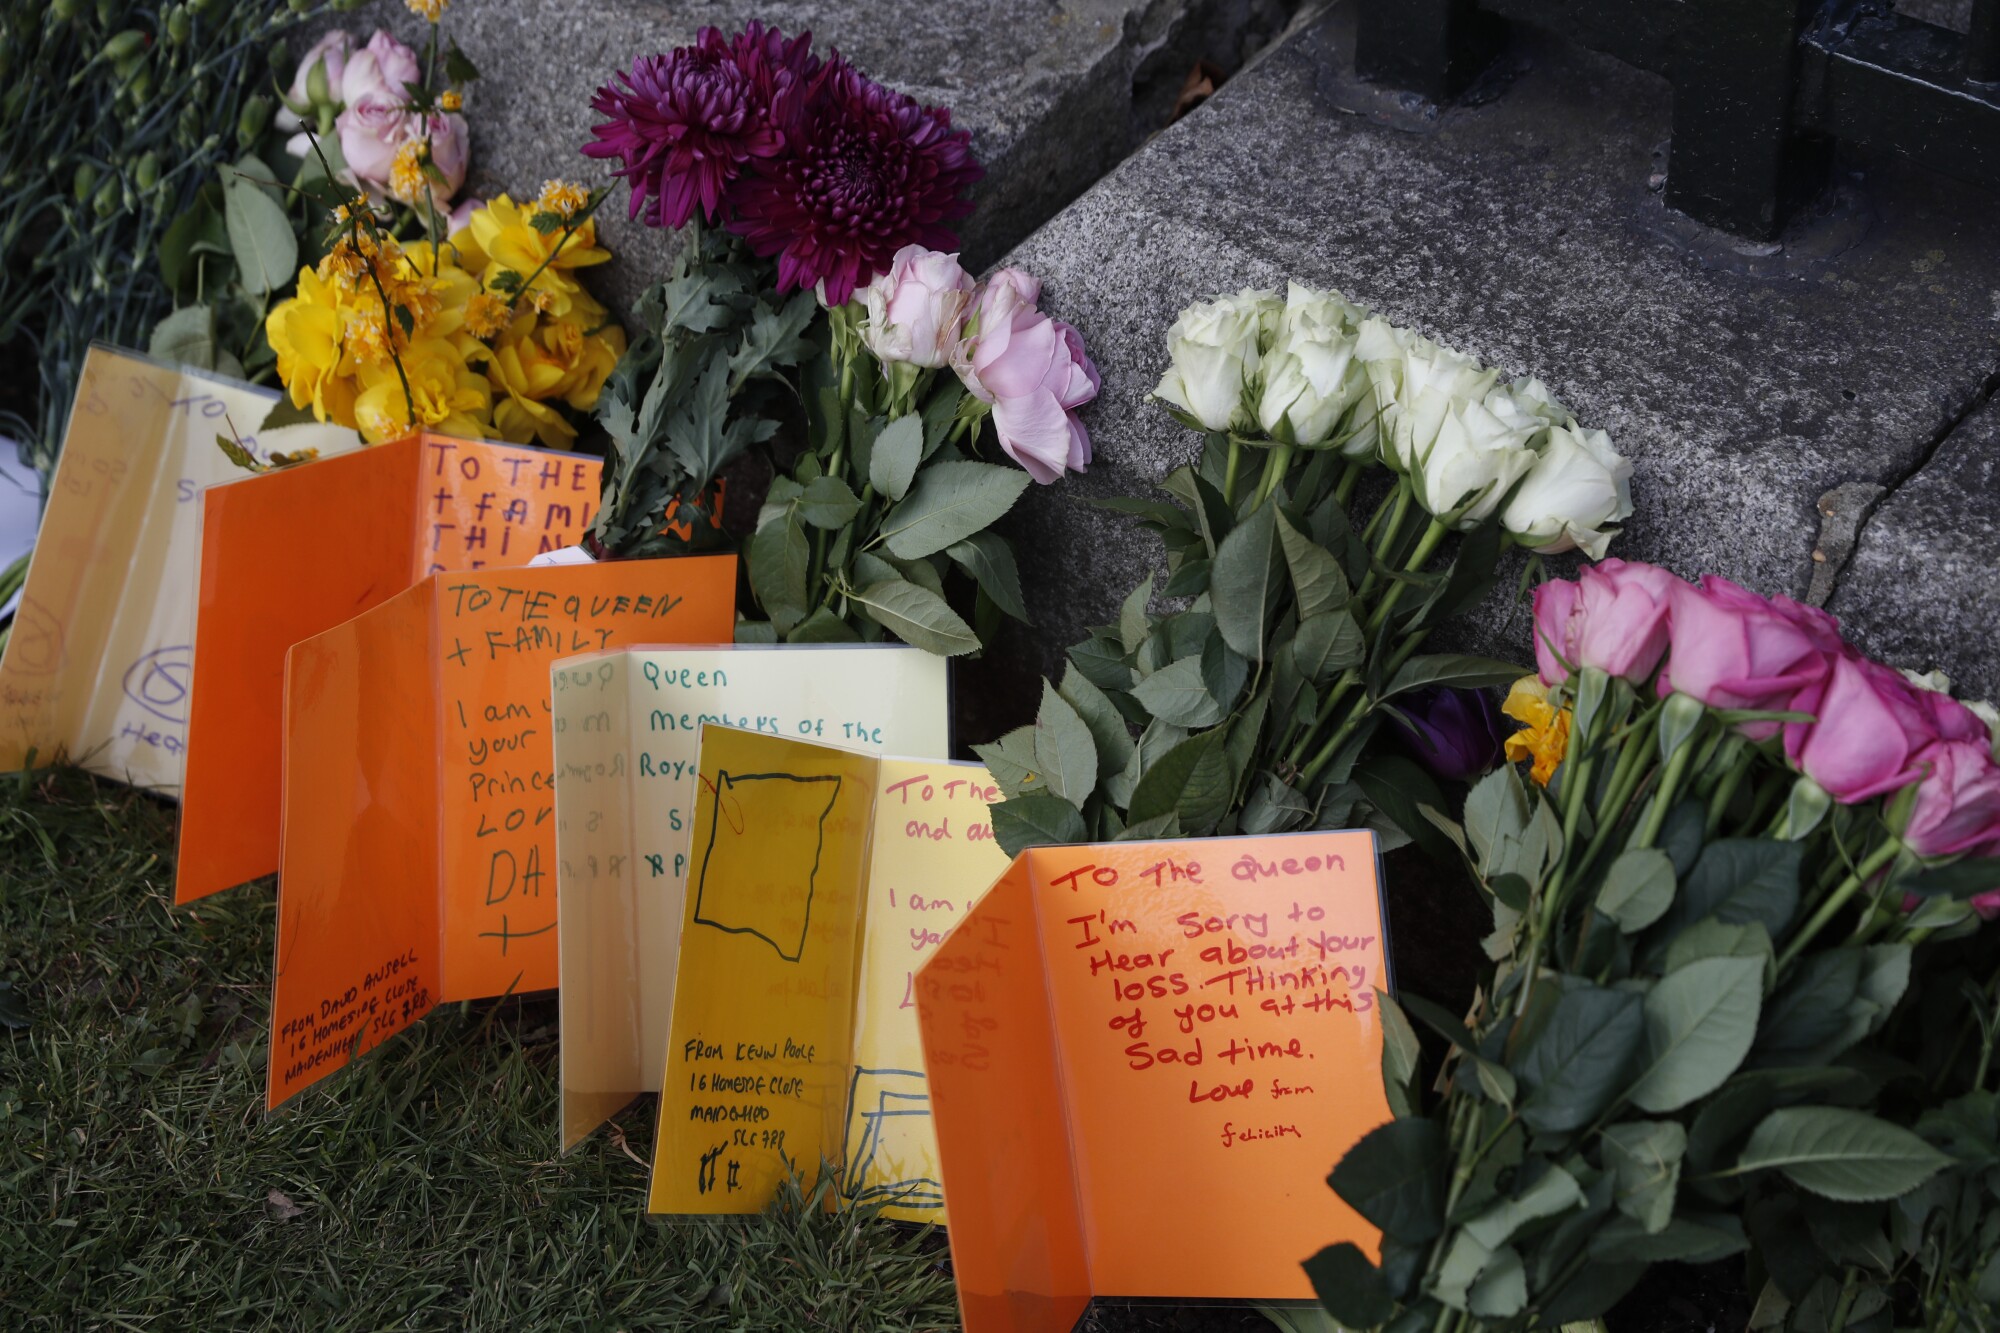 TO
TO THE
+ FAMI
THIN
TO THE QUEEN
+ FAMILY
I am
your
Prince
LOV
DA
+
FROM DAVID ANSELL
16 HOMESIDE CLOSE
MAIDENHEAD SL6 7RB
Queen
Members of The
Roya
To The
and al
I am
FROM KEVIN POOLE
16 HOMESIDE CLOSE
MAIDENHEAD
SL6 7RB
To The Queen
I'm Sorry to
Hear about your
loss. Thinking
of you at this
Sad time.
Love from
felicity
Hea